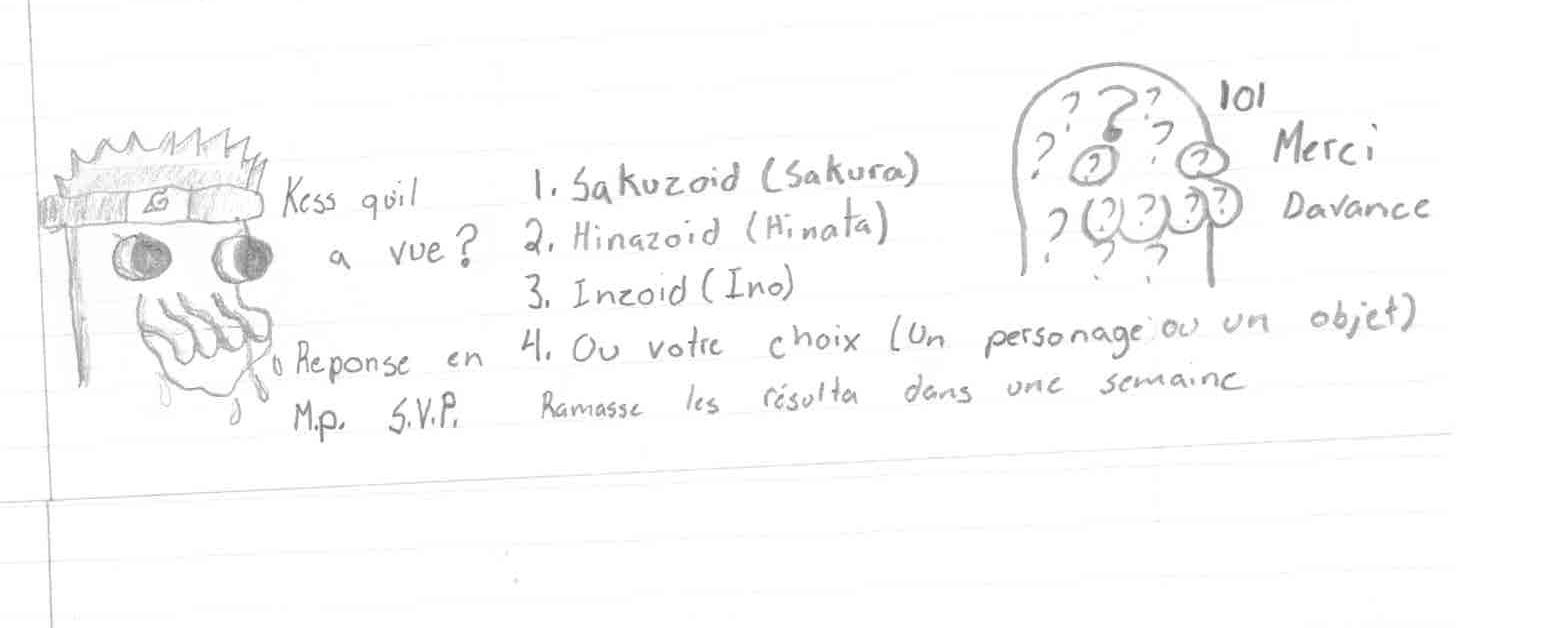 Kess qu'il
a vue?
Reponse en
M.p. S.V.P.
1. Sakuzoid (Sakura)
2. Hinazoid (Hinata)
3. Inzoid (Ino)
4. Ou votre choix (Un personage ou un objet)
Ramasse les résulta dans une semaine
? ? ? ? ? ? ? ? ? ? ? ? ? ? ?
101
Merci
Davance